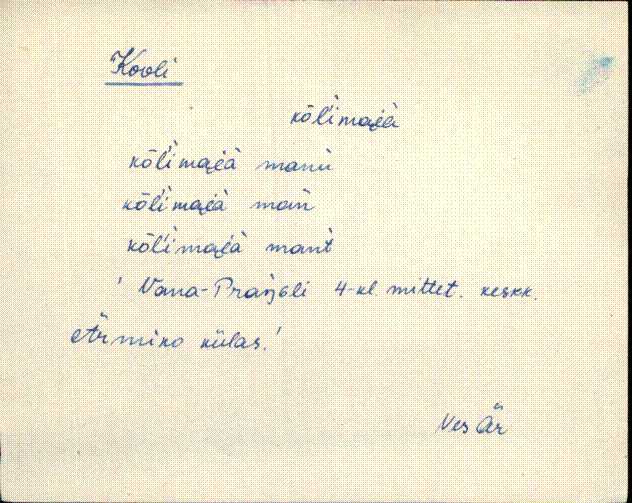 Kooli
kōl̀imajà
kōl̀imajà manù
kōl̀imajà man̄
kōl̀imajà mant̀
' Vana-Prangli 4-kl. mittet. keskk.
Ärmiko külas.'
Ves Är